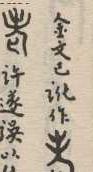 金文已訛作
許遂誤以